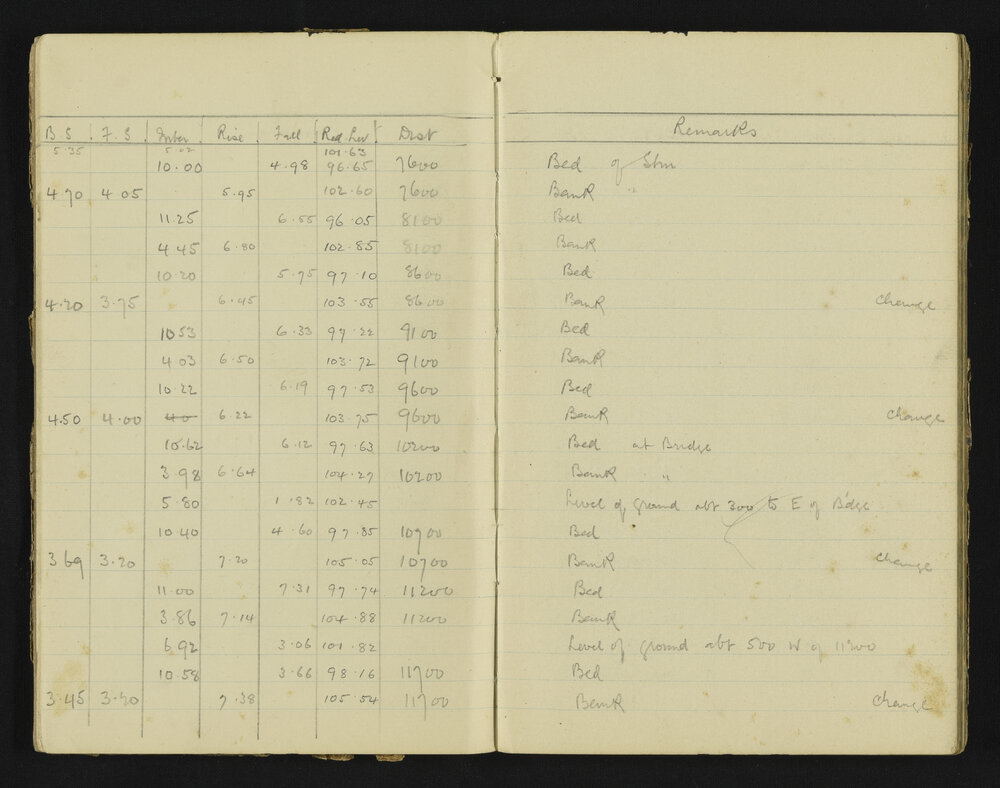 B.S F.S Inter Rise Fall Red Lev Dist Remarks
5.35 5.02 101.63
10.00 4.98 96.65 7600 Bed of Stm
4.70 4.05 5.95 102.60 7600 Bank "
11.25 6.55 96.05 8100 Bed
4.45 6.80 102.85 8100 Bank
10.20 5.75 97.10 8600 Bed
4.20 3.75 6.45 103.55 8600 Bank Change
10.53 6.33 97.22 9100 Bed
4.03 6.50 103.72 9100 Bank
10.22 6.19 97.53 9600 Bed
4.50 4.00 6.22 103.75 9600 Bank Change
10.62 6.12 97.63 10200 Bed at Bridge
3.98 6.64 104.27 10200 Bank "
5.80 1.82 102.45 Level of ground abt 300 to E of Bdge
10.40 4.60 97.85 10700 Bed
3.69 3.20 7.20 105.05 10700 Bank Change
11.00 7.31 97.74 11200 Bed
3.86 7.14 104.88 11200 Bank
6.92 3.06 101.82 Level of ground abt 500 W of 11200
10.58 3.66 98.16 11700 Bed
3.45 3.20 7.38 105.54 11700 Bank Change